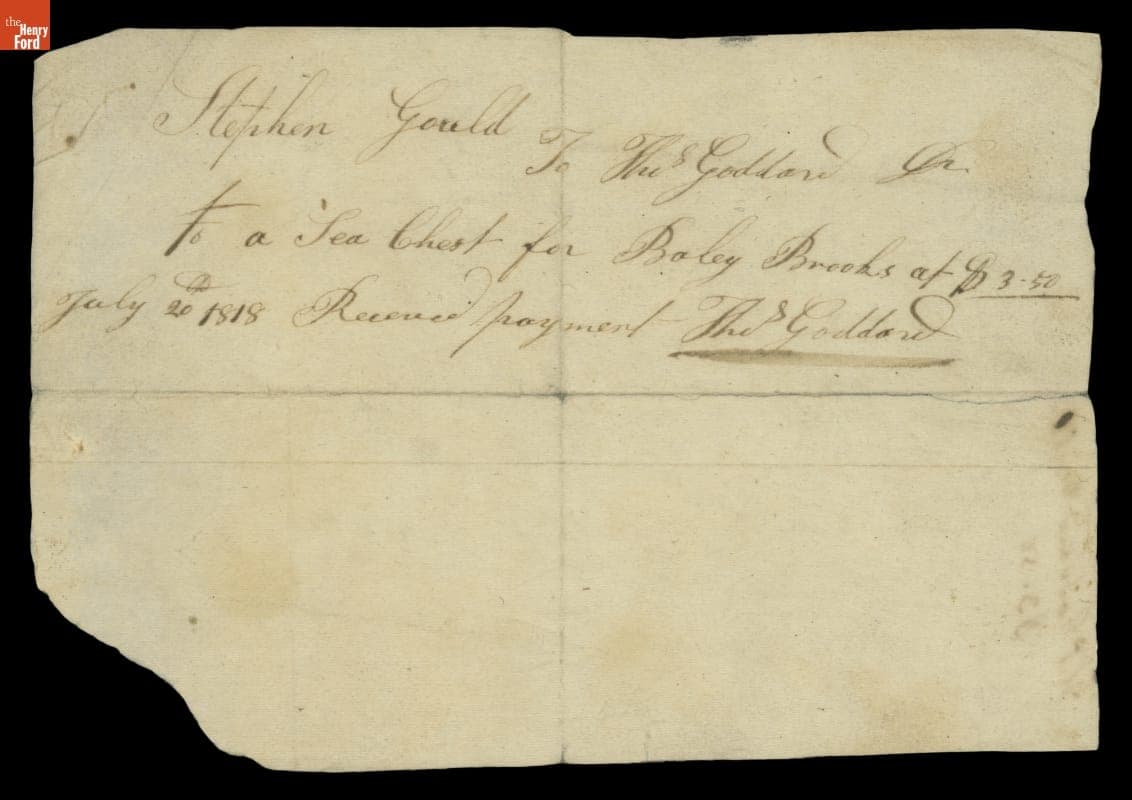 the
Henry
Ford
Stephen Gould
To Thos Goddard Dr.
To a Sea Chest for Baley Brooks at $ 3-50
July 20th 1818 Receved payment Thos Goddard